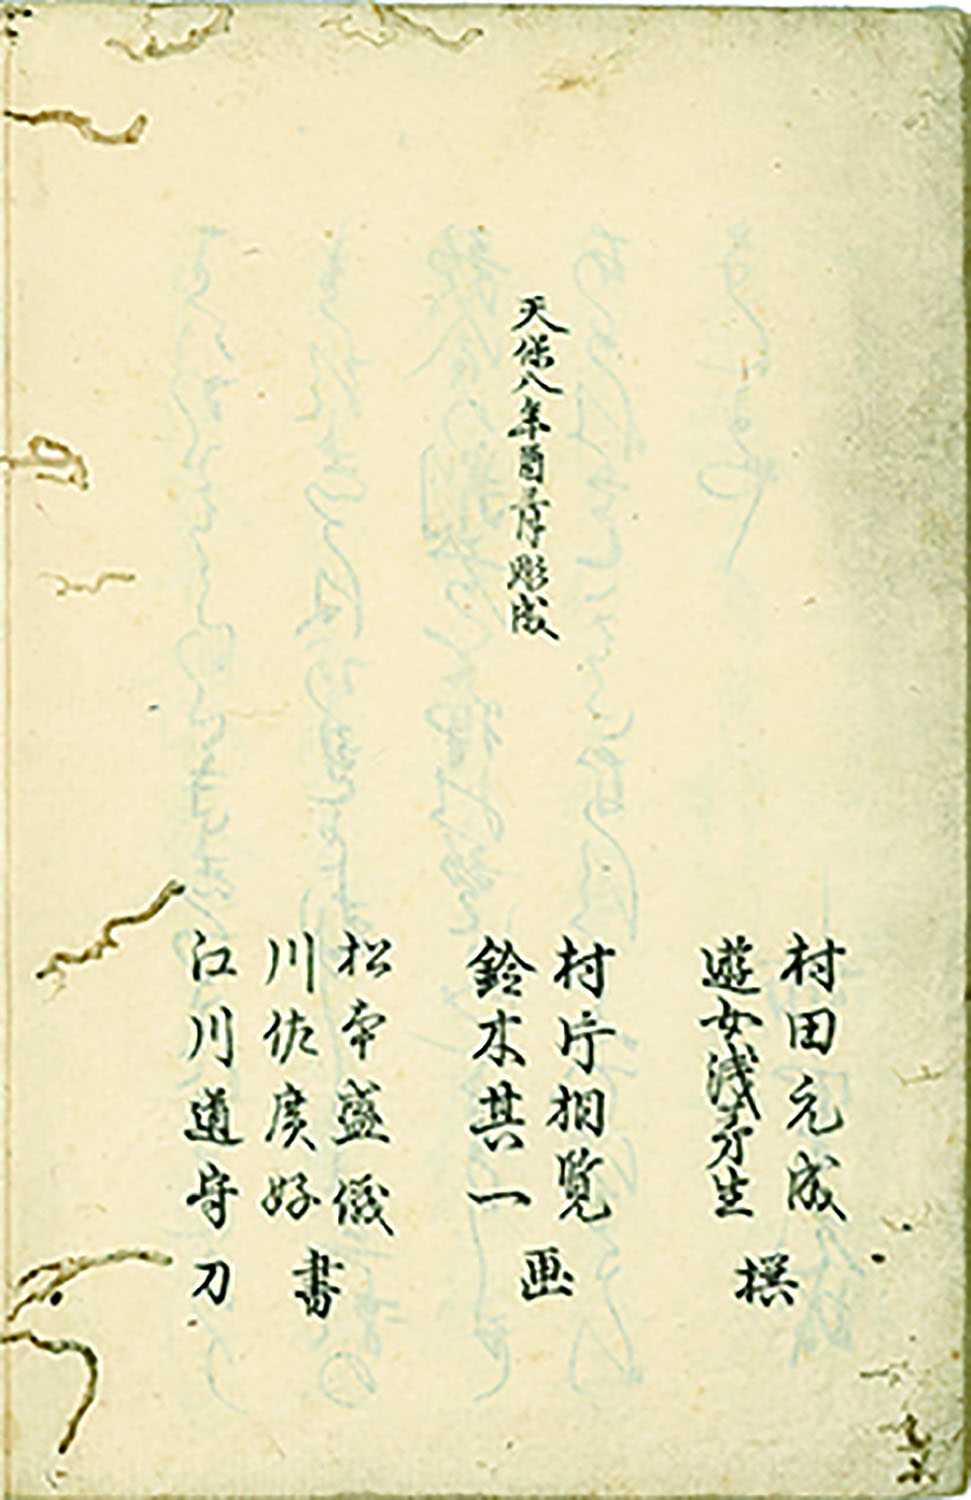 村田元成
遊女浅茅生
撰
天保八年酉孟春彫成
村片相覧
鈴木其一
画
松本盛儀
川佐広好
書
江川道守刀